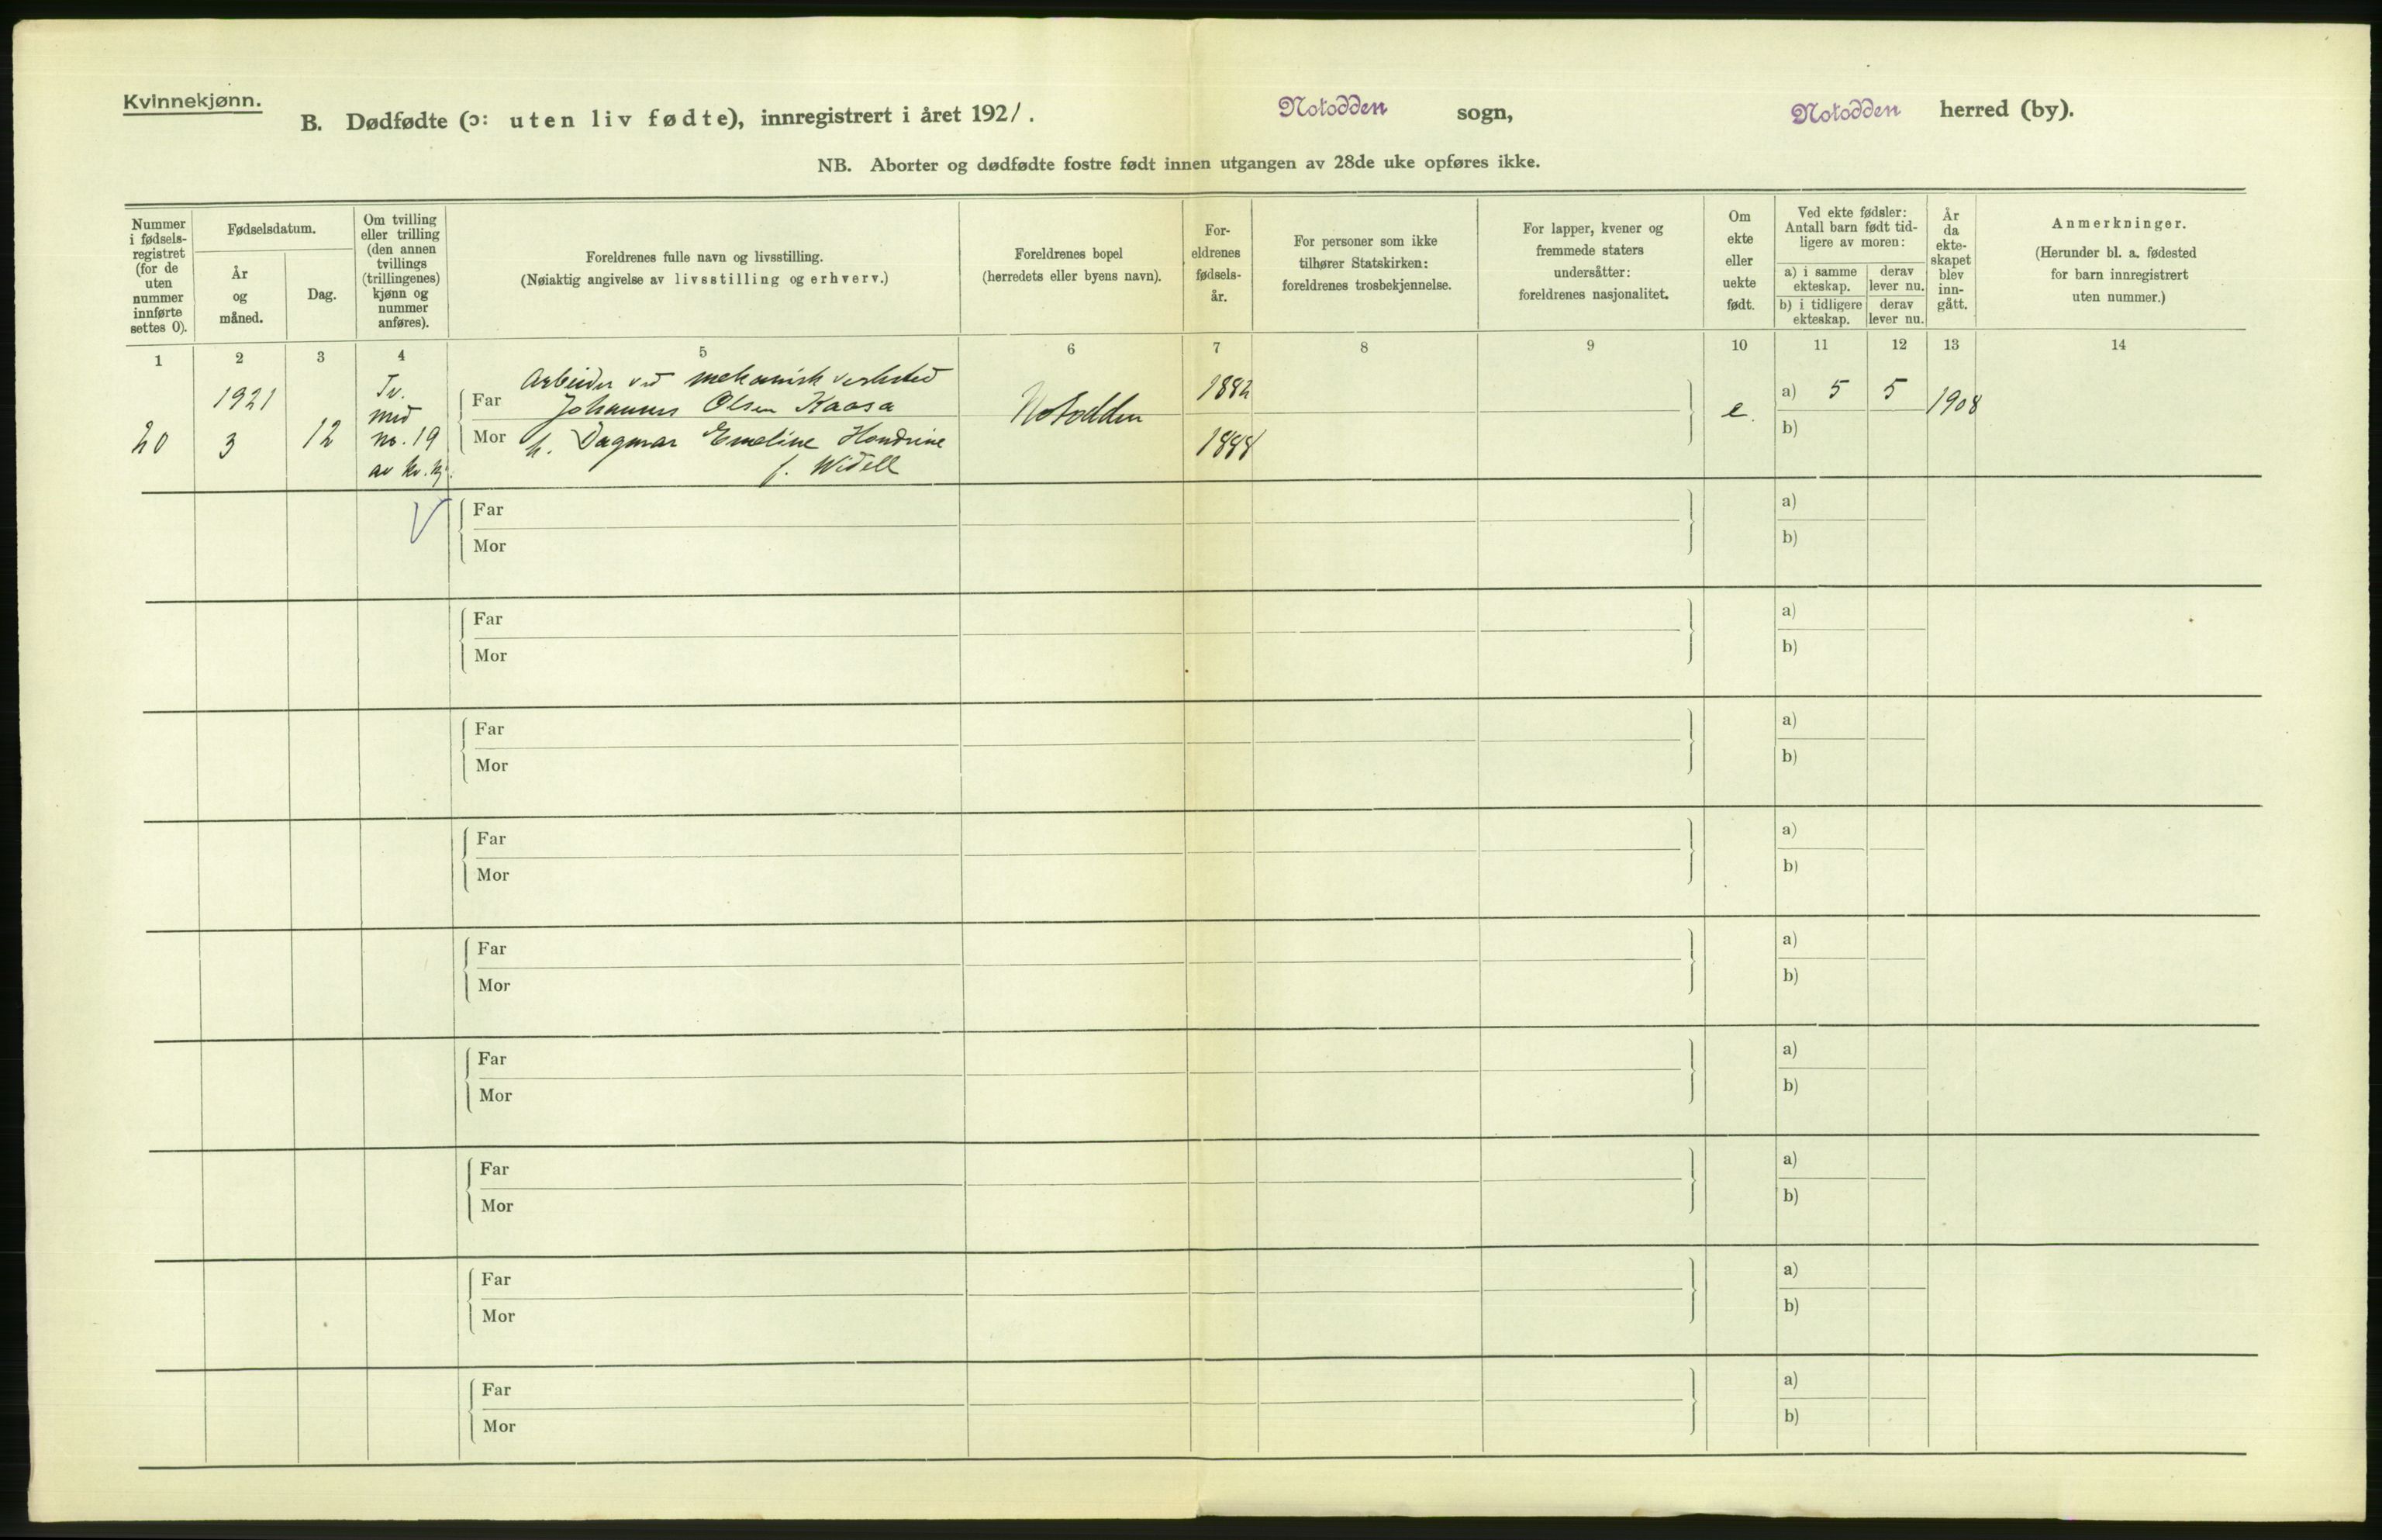 Kvinnekjønn.
B. Dødfødte (ɔ: uten liv fødte), innregistrert i året 1921. Notodden sogn, Notodden herred (by).
NB. Aborter og dødfødte fostre født innen utgangen av 28de uke opføres ikke.
Nummer i fødsels-registret (for de uten nummer innførte settes 0).
Fødselsdatum.
År og måned.
Dag.
Om tvilling eller trilling (den annen tvillings (trillingenes) kjønn og nummer anføres).
Foreldrenes fulle navn og livsstilling.
(Nøiaktig angivelse av livsstilling og erhverv.)
Foreldrenes bopel
(herredets eller byens navn).
For-eldrenes fødsels-år.
For personer som ikke tilhører Statskirken: foreldrenes trosbekjennelse.
For lapper, kvener og fremmede staters undersåtter: foreldrenes nasjonalitet.
Om ekte eller uekte født.
Ved ekte fødsler: Antall barn født tid-ligere av moren:
a) i samme ekteskap.
derav lever nu.
b) i tidligere ekteskap.
derav lever nu.
År da ekte-skapet blev inn-gått.
Anmerkninger.
(Herunder bl. a. fødested for barn innregistrert uten nummer.)
1 2 3 4 5 6 7 8 9 10 11 12 13 14
20 1921 3 12
Tv. med no. 19 av kv. kj.
Arbeider ved mekanisk verksted
Far Johannes Olsen Kaasa
Mor h. Dagmar Emeline Hondrine
f. Widell
Notodden
1882
1888
e.
a) 5 5 1908
b)
Far a)
Mor b)
Far a)
Mor b)
Far a)
Mor b)
Far a)
Mor b)
Far a)
Mor b)
Far a)
Mor b)
Far a)
Mor b)
Far a)
Mor b)
Far a)
Mor b)